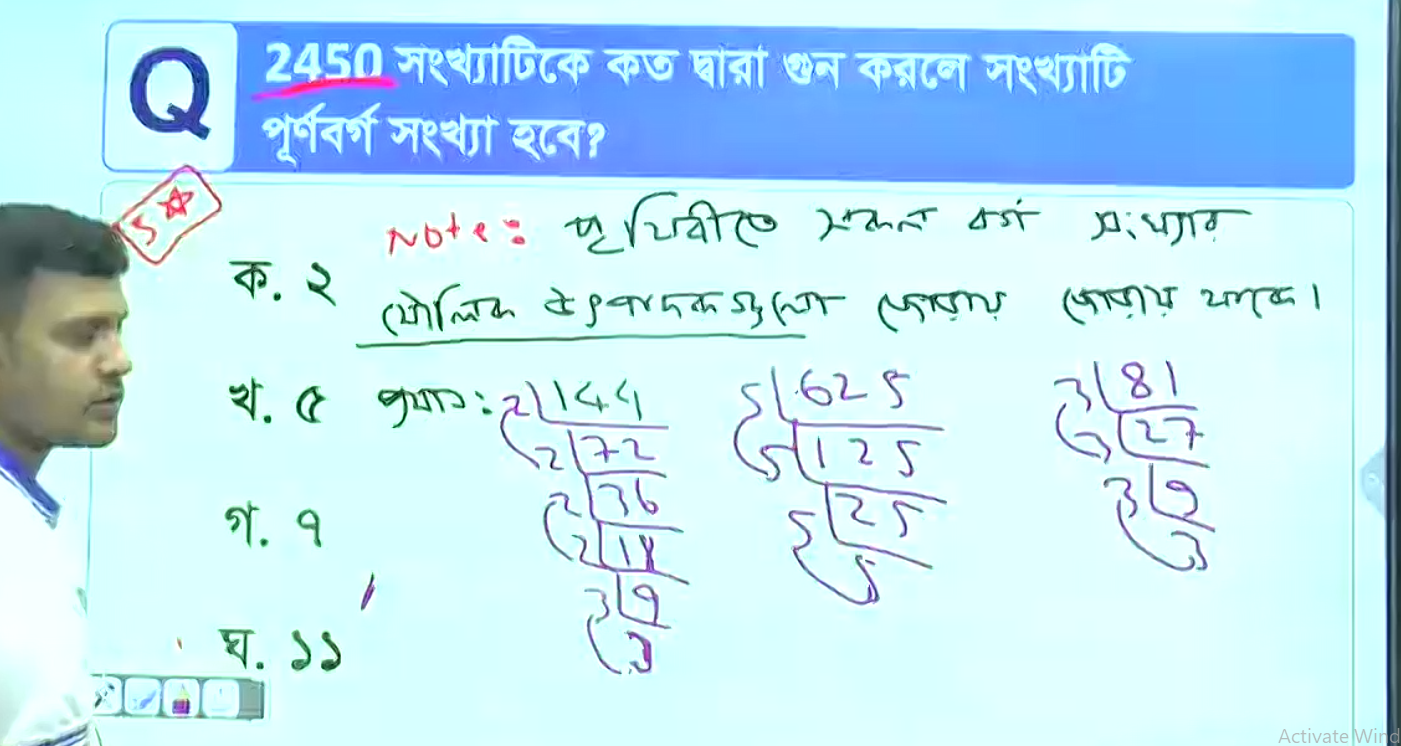 Q
2450 সংখ্যাটিকে কত দ্বারা গুন করলে সংখ্যাটি
পূর্ণবর্গ সংখ্যা হবে?
5
Note: পৃথিবীতে সকল বর্গ সংখ্যার
ক. ২
মৌলিক উৎপাদকগুলো জোরায় জোরায় থাকে।
খ. ৫
প্রমান:
2 144
2 72
2 36
2 18
3 9
3
5 625
5 125
5 25
5
3 81
3 27
3 9
3
গ. ৭
ঘ. ১১
Activate Wind